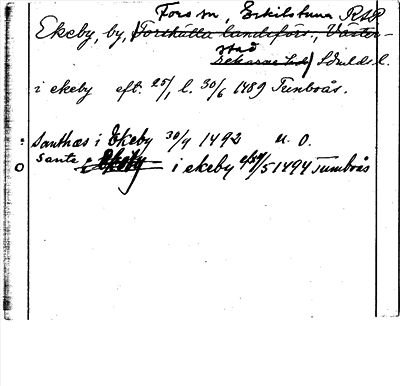 Fors sn, Eskilstuna RSR
Ekeby, by, Torshälla landsförs., Väster-
stad
Rekarne hd, Södml. l.
i ekeby eft. 25/1, l. 30/6 1489 Tunboås.
Santhas i Ekeby 30/4 1492 u. o.
Sante i ekeby eft 1/5 1494 Tumboås